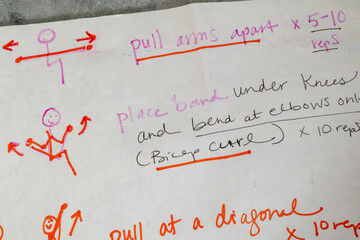 pull arms apart x 5-10
reps
place band under knees
and bend at elbows only
(Bicep curl) x 10 reps
pull at a diagonal
x 10 reps